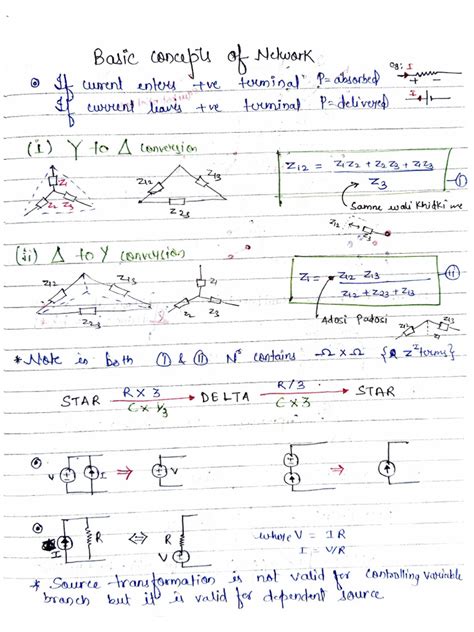 Basic concepts of Network
eg: I
If current enters +ve terminal P=absorbed
If current leaves +ve terminal P=delivered
I
(i) Y to Δ conversion
Z1
Z2 Z3
Z12 Z13
Z23
Z12 = Z1Z2 + Z2Z3 + Z1Z3
Z3
(I)
Samne wali Khidki me
Z12
Z3
(ii) Δ to Y conversion
Z12 Z13
Z23
Z1
Z2 Z3
Z1 = Z12 Z13
Z12 + Z23 + Z13
(II)
Adosi Padosi
Z12 Z13
* Note in both (I) & (II) Nr contains Ω x Ω {Z² terms}
STAR R X 3 DELTA R/3 STAR
C X 1/3 C X 3
V I ⇒ V
⇒
I R ⇔ R
V
where V = IR
I = V/R
* Source transformation is not valid for controlling variable
branch but it is valid for dependent source